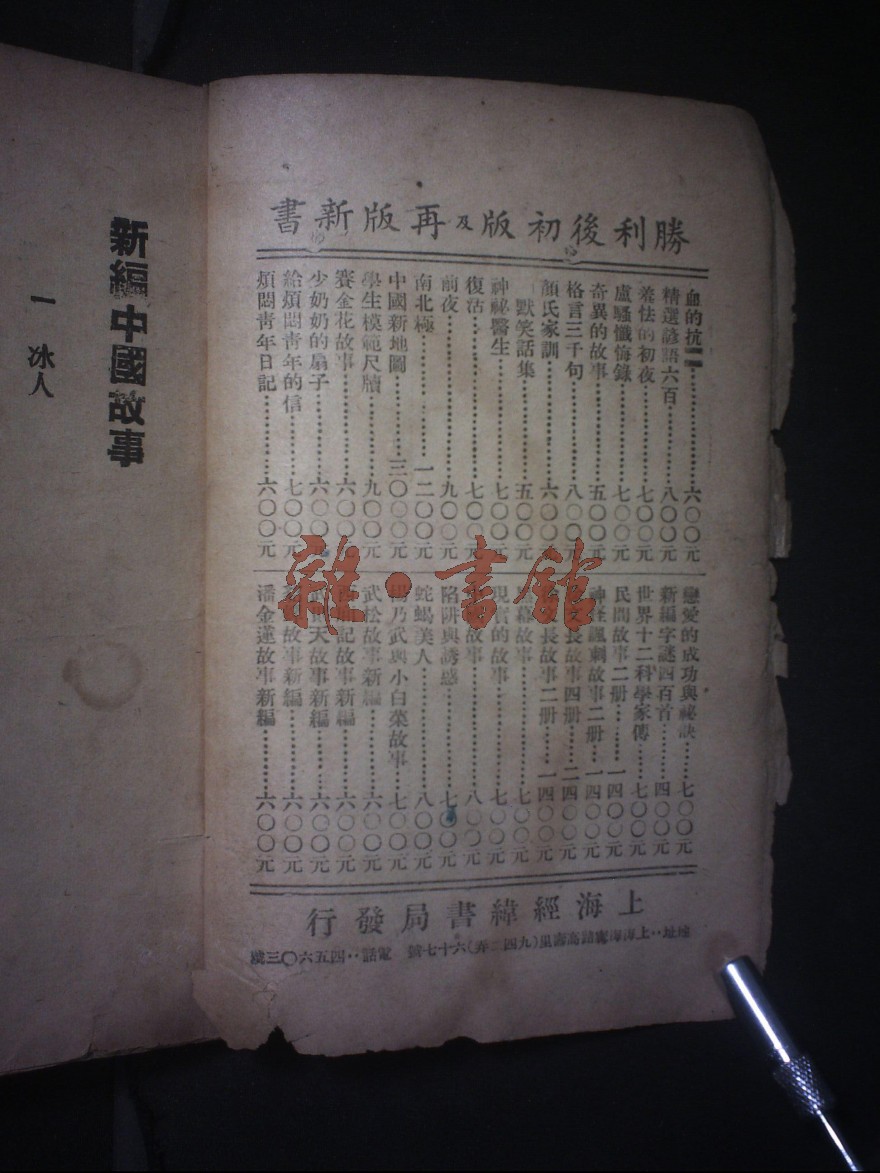 勝利後初版及再版新書
血的抗
六〇〇元
精選諺語六百
八〇〇元
羞怯的初夜
七〇〇元
盧騷懺悔錄
七〇〇元
奇異的故事
五〇〇元
格言三千句
八〇〇元
顏氏家訓
六〇〇元
默笑話集
五〇〇元
神祕醫生
七〇〇元
復活
七〇〇元
前夜
九〇〇元
南北極
一二〇〇元
中國新地圖
三〇〇〇元
學生模範尺牘
九〇〇元
賽金花故事
六〇〇元
少奶奶的扇子
六〇〇元
給煩悶靑年的信
七〇〇元
煩悶靑年日記
六〇〇元
戀愛的成功與祕訣
七〇〇元
新編字謎四百首
四〇〇元
世界十二科學家傳
七〇〇元
民間故事二册
一四〇〇元
神怪諷刺故事二册
一四〇〇元
長故事四册
二四〇〇元
長故事二册
一四〇〇元
幕故事
七〇〇元
現實的故事
七〇〇元
故事
八〇〇元
陷阱與誘惑
七〇〇元
蛇蝎美人
八〇〇元
楊乃武與小白菜故事
七〇〇元
武松故事新編
六〇〇元
記故事新編
六〇〇元
天故事新編
六〇〇元
故事新編
六〇〇元
潘金蓮故事新編
六〇〇元
上海經緯書局發行
地址‥上海海甯路高壽里(九四二弄)六十七號　電話‥四五六〇三號
新編中國故事
一　冰人
雜·書館